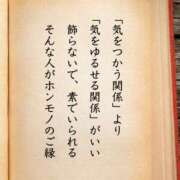 「気をつかう関係」より
「気をゆるせる関係」がいい
飾らないで、素でいられる
そんな人がホンモノのご縁